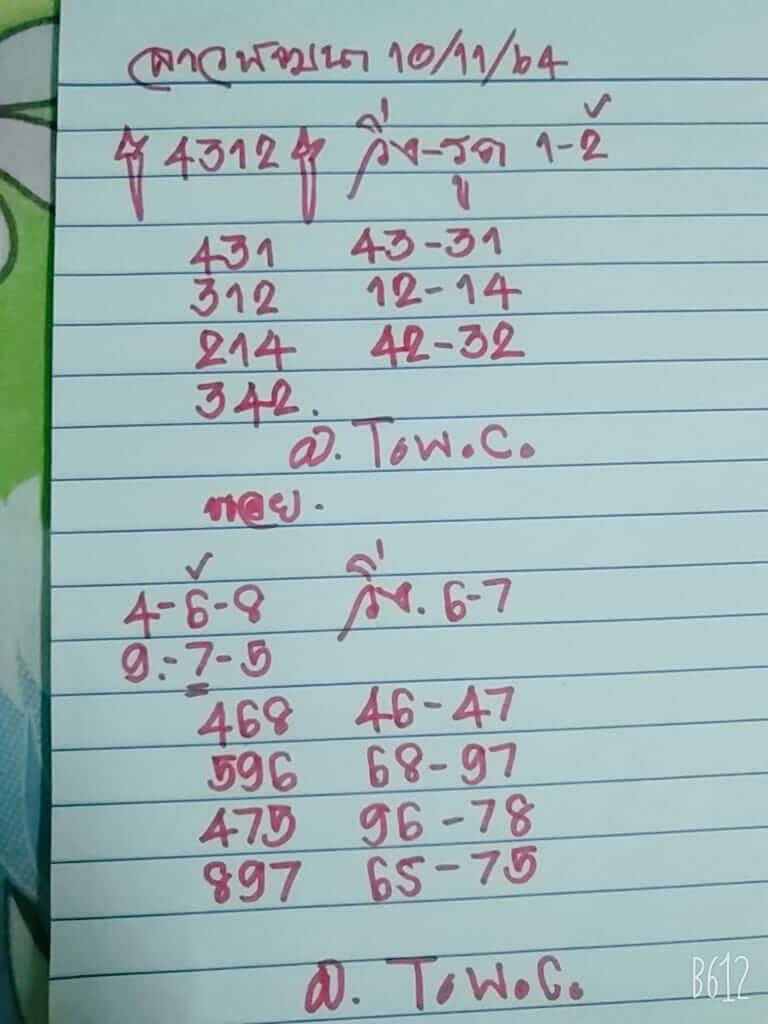 ลาวพัฒนา 10/11/64
4312 วิ่ง-รูด 1-2
431 43-31
312 12-14
214 42-32
342.
ฝ. T.W.C.
หอย.
4-6-8 วิ่ง. 6-7
9.-7-5
468 46-47
596 68-97
475 96-78
897 65-75
ฝ. T.W.C.
B612